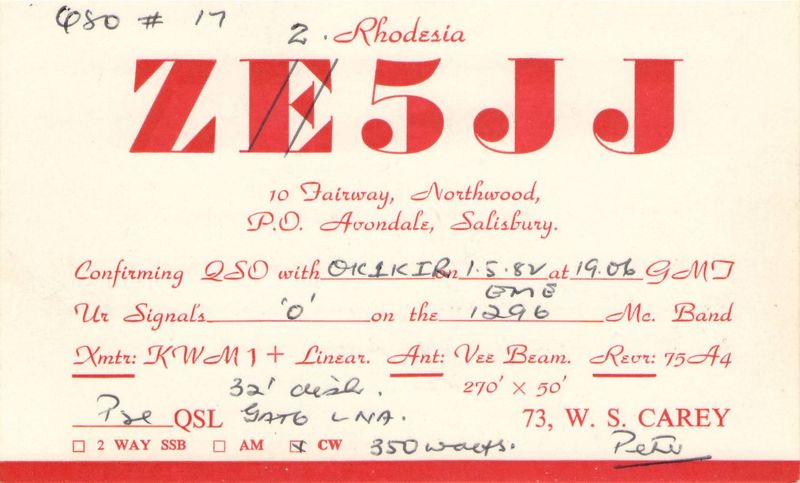 QSO # 17
2. Rhodesia
ZE5JJ
10 Fairway, Northwood,
P.O. Avondale, Salisbury.
Confirming QSO with OK1KIR on 1.5.82 at 19.06 GMT
EME
Ur Signals '0' on the 1296 Mc. Band
Xmtr: KWM1 + Linear. Ant: Vee Beam. Rcvr: 75A4
32' dish. 270' × 50'
Pse QSL GAT6 LNA. 73, W. S. CAREY
2 WAY SSB AM CW 350 watts. Peter